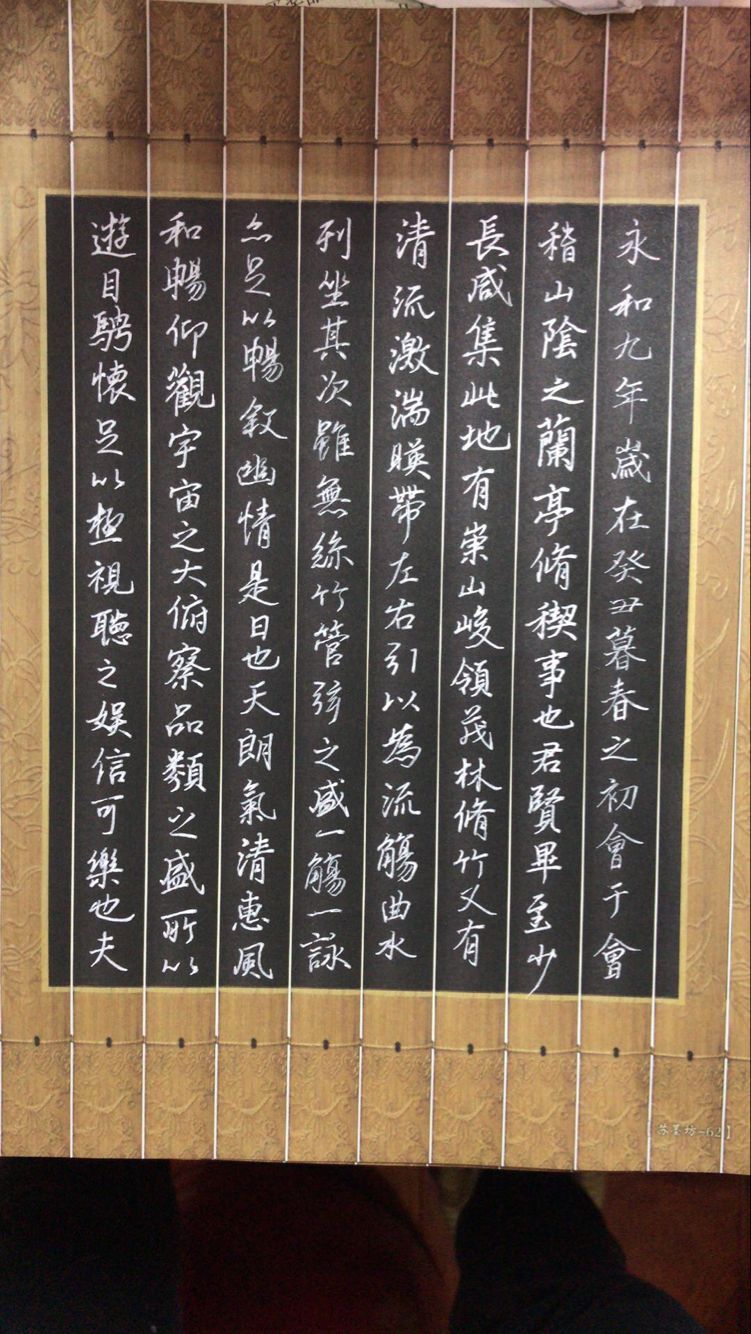 永和九年歲在癸丑暮春之初會于會
稽山陰之蘭亭脩稧事也君賢畢至少
長咸集此地有崇山峻領茂林脩竹又有
清流激湍暎帶左右引以為流觴曲水
列坐其次雖無絲竹管弦之盛一觴一詠
亦足以暢敘幽情是日也天朗氣清惠風
和暢仰觀宇宙之大俯察品類之盛所以
遊目騁懷足以極視聽之娛信可樂也夫
【苏墨坊-62】